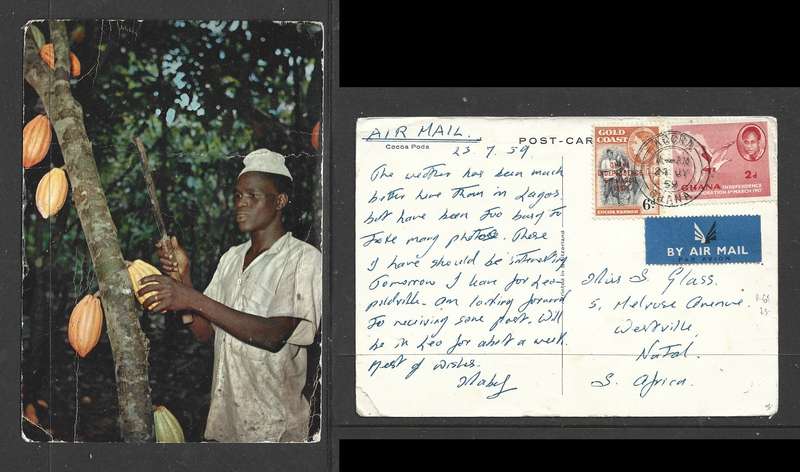 AIR MAIL.
POST-CAR
Cocoa Pods
23 7. 59.
The weather has been much
better here than in Lagos
but have been too busy to
take many photos. Those
I have should be interesting
Tomorrow I leave for Leo-
poldville. Am looking forward
to receiving some post. Will
be in Leo for about a week.
Best of wishes.
GOLD
COAST
GHANA
INDEPENDENCE
6TH MARCH
1957
6d
ACCRA
59
GHANA
GHANA INDEPENDENCE
6TH MARCH 1957
2d
BY AIR MAIL
PAR AVION
Miss S Glass.
5, Melrose Avenue.
Westville,
Natal.
S. Africa.